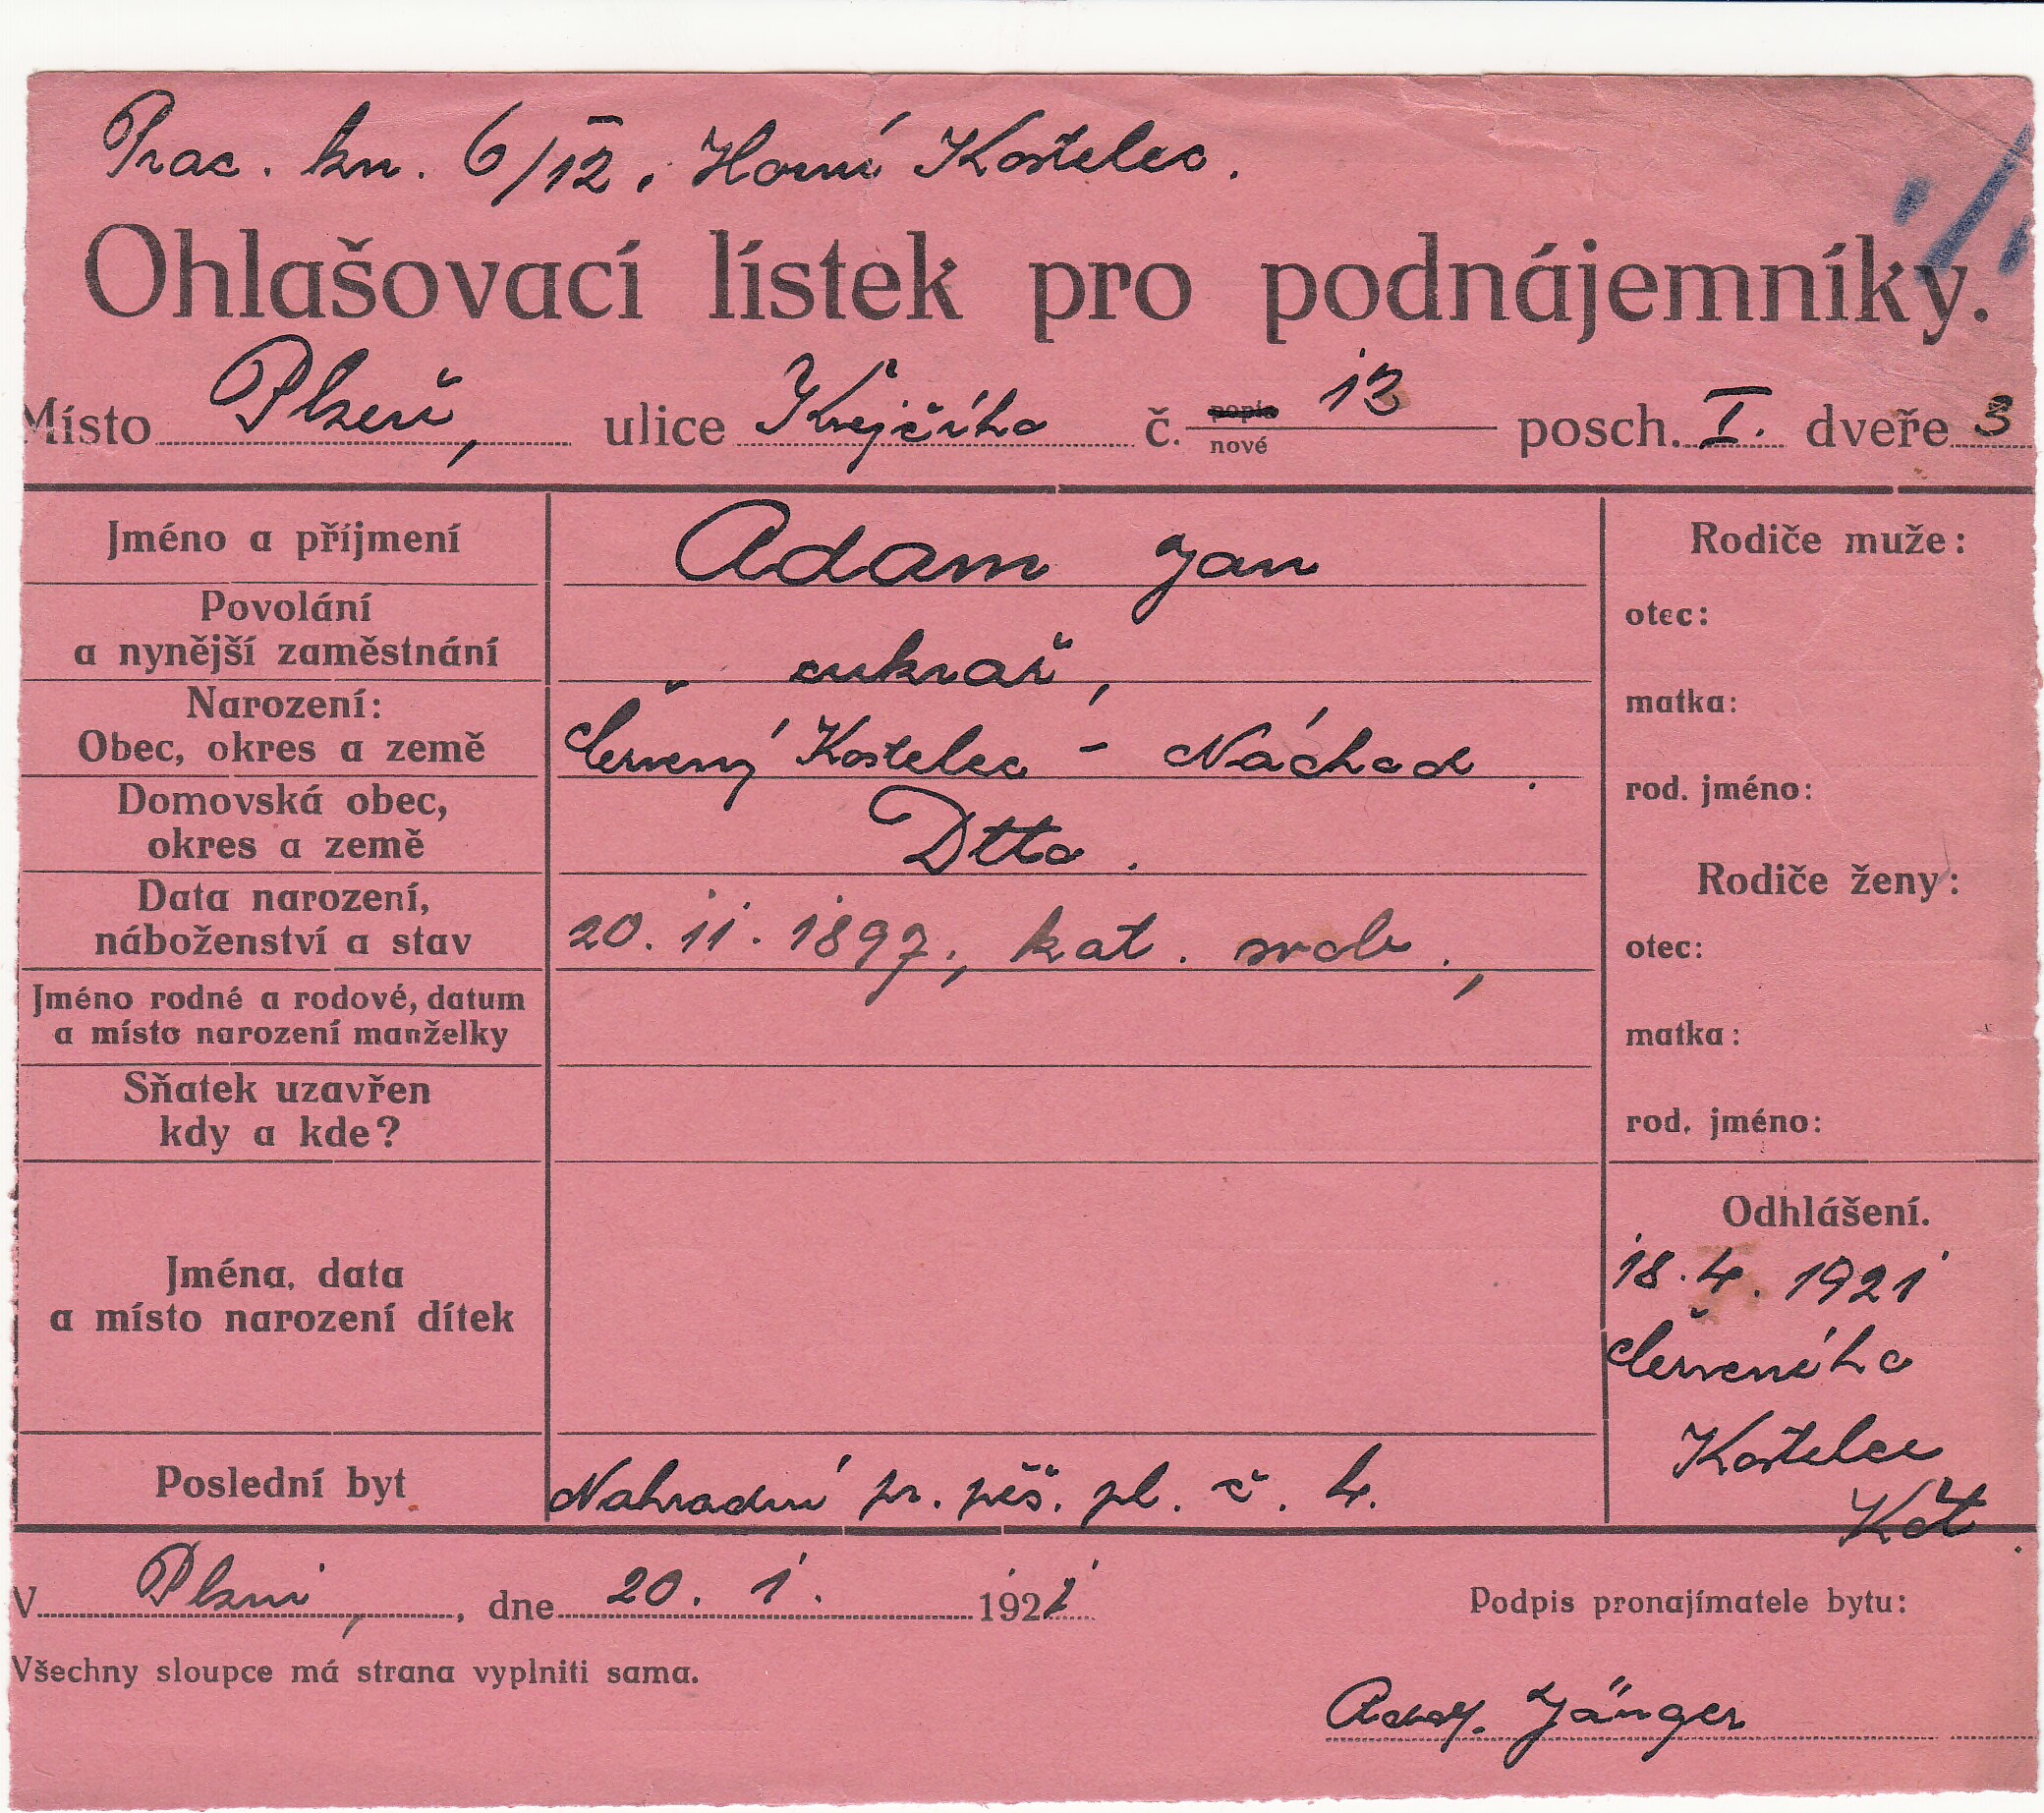 Prac. kn. 6/12, Horní Kostelec.
Ohlašovací lístek pro podnájemníky.
Místo Plzeň, ulice Krejčího č. popis nové 13 posch. I. dveře 3
Jméno a příjmení Adam Jan
Povolání
a nynější zaměstnání cukrář,
Narození:
Obec, okres a země Červený Kostelec - Náchod.
Domovská obec,
okres a země Dtto.
Data narození,
náboženství a stav 20. 11. 1897., kat. svob.,
Jméno rodné a rodové, datum
a místo narození manželky
Sňatek uzavřen
kdy a kde?
Jména, data
a místo narození dítek
Poslední byt Nahradní pr. pěš. pl. č. 4.
Rodiče muže:
otec:
matka:
rod. jméno:
Rodiče ženy:
otec:
matka:
rod. jméno:
Odhlášení.
18. 4. 1921
Červeného
Kostelce
V Plzni, dne 20. 1. 1921
Podpis pronajímatele bytu:
Všechny sloupce má strana vyplniti sama.
Adolf. Jänger